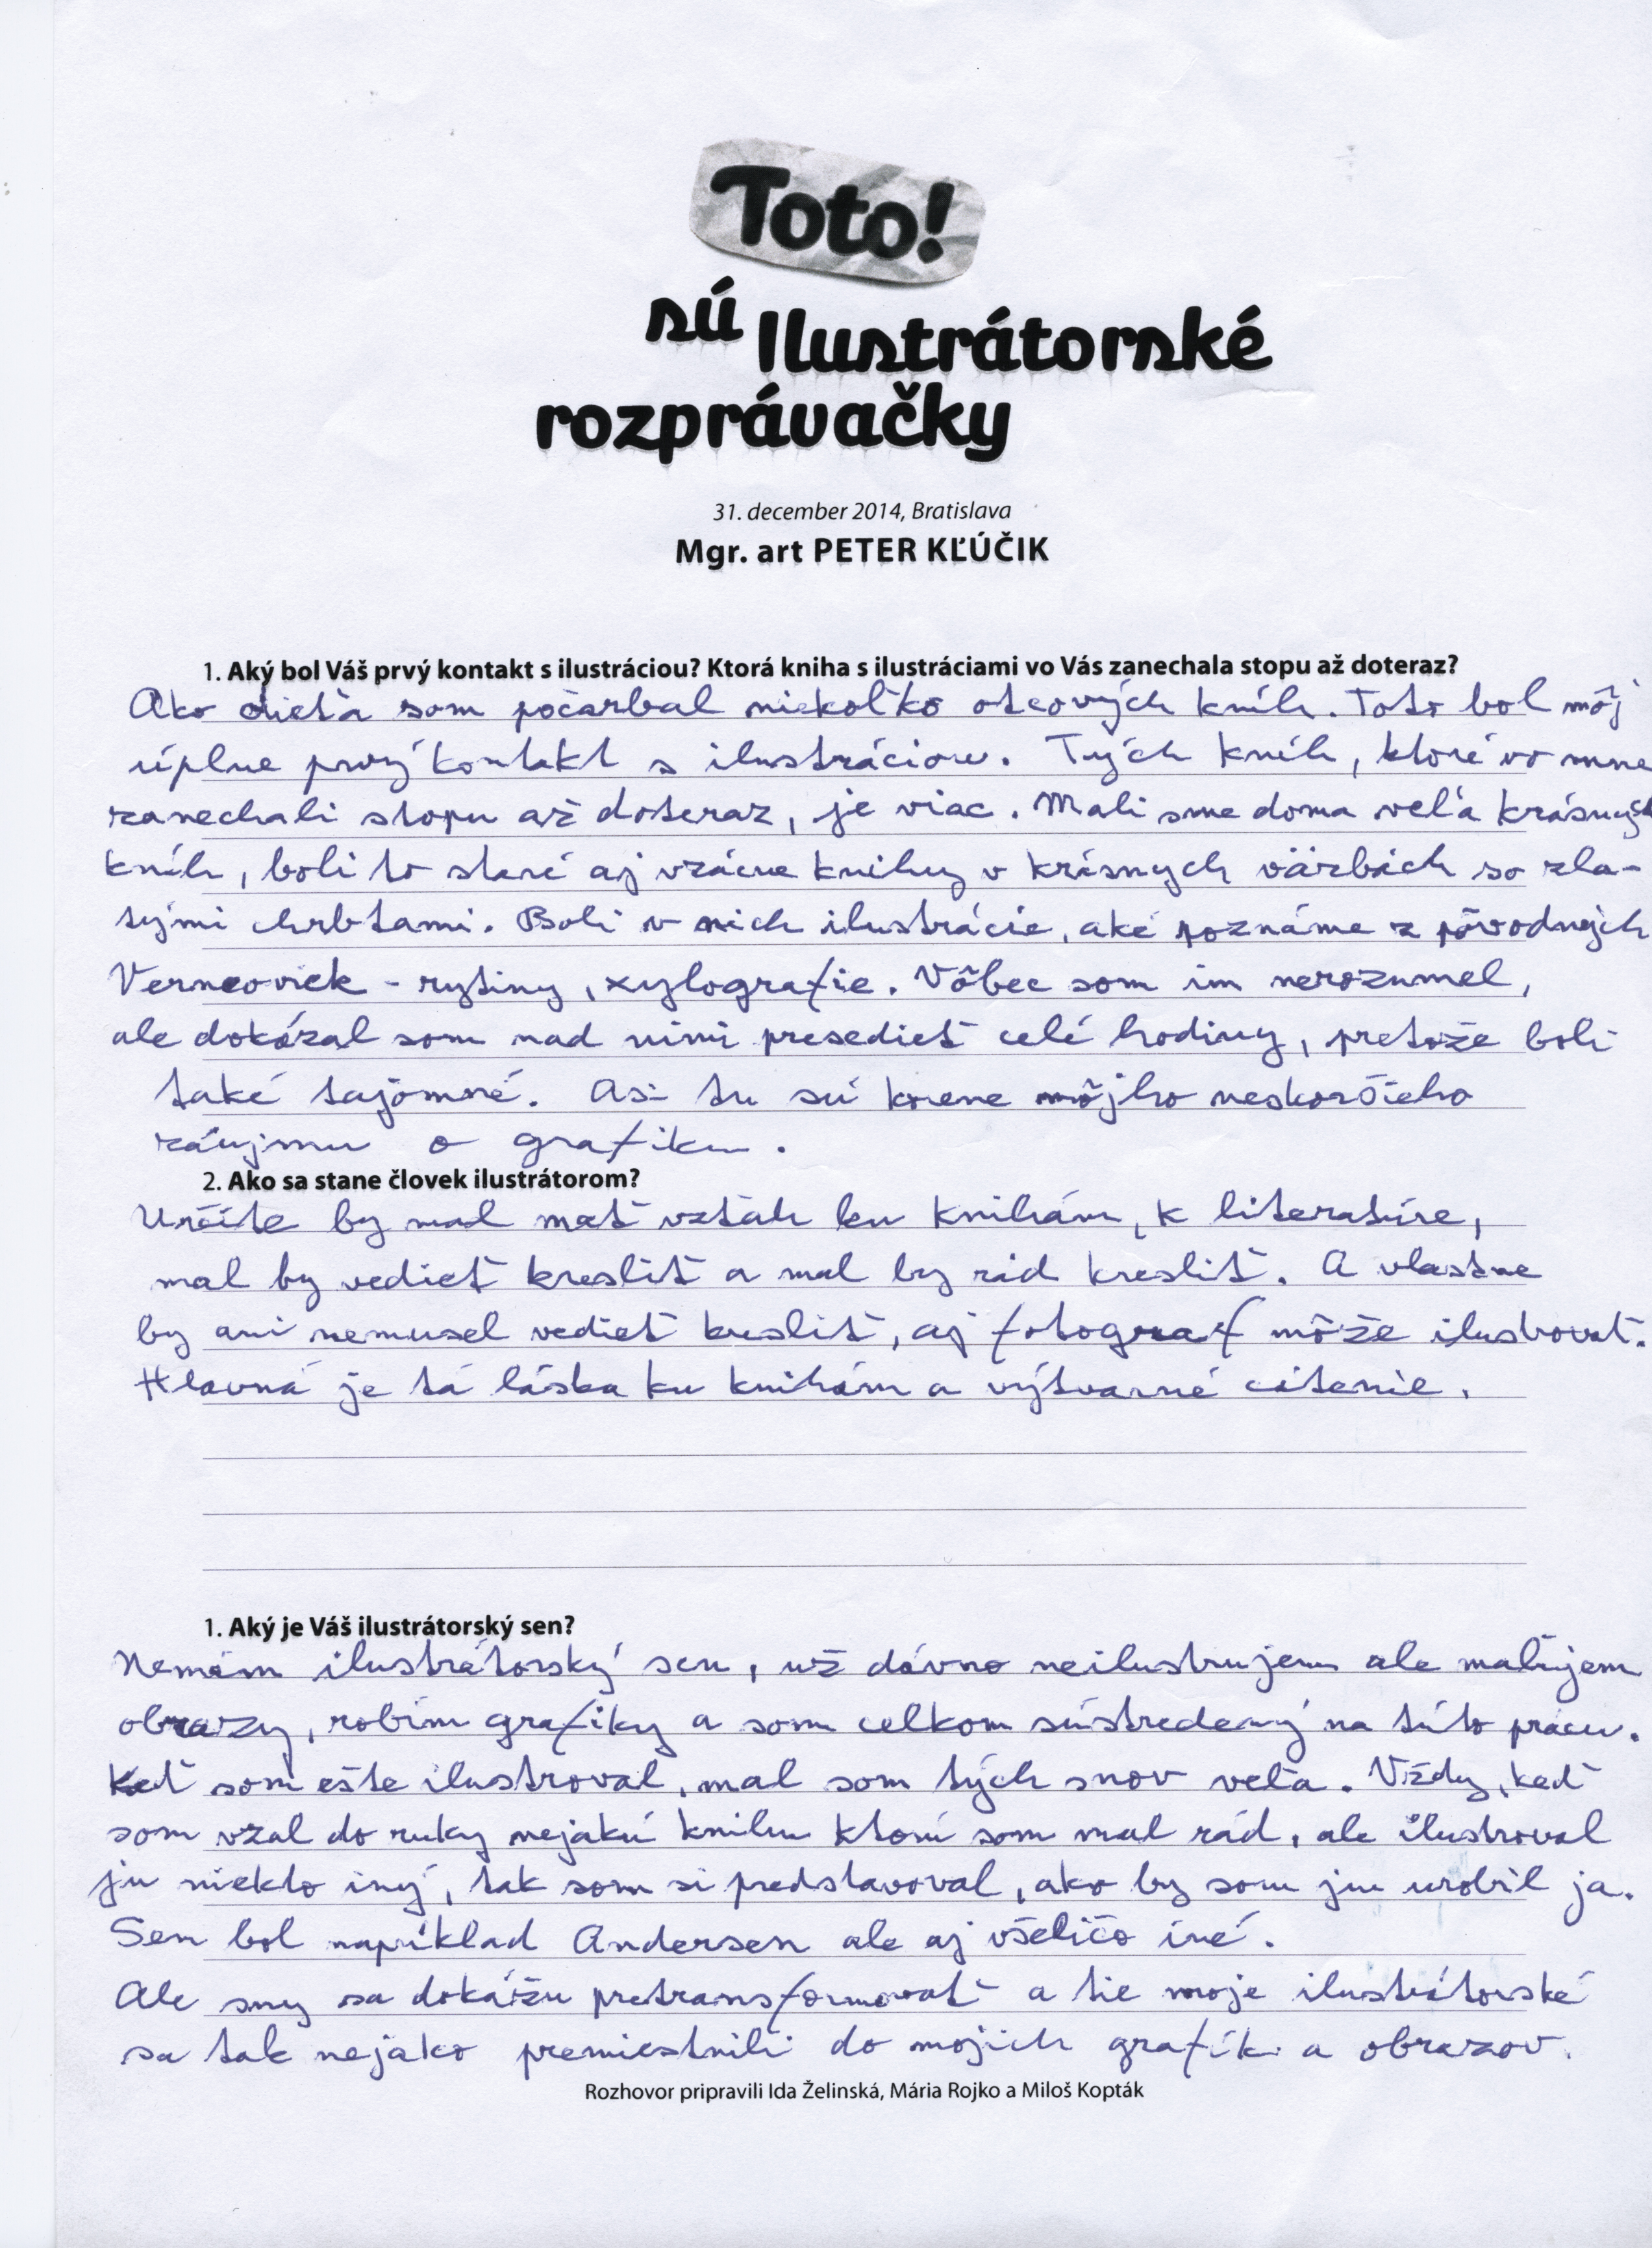 Toto!
sú Ilustrátorské
rozprávačky
31. december 2014, Bratislava
Mgr. art PETER KĽÚČIK
1. Aký bol Váš prvý kontakt s ilustráciou? Ktorá kniha s ilustráciami vo Vás zanechala stopu až doteraz?
Ako dieťa som počarbal niekoľko otcových kníh. Toto bol môj
úplne prvý kontakt s ilustráciou. Tých kníh, ktoré vo mne
zanechali stopu až doteraz, je viac. Mali sme doma veľa krásnych
kníh, boli to staré aj vzácne knihy v krásnych väzbách so zla-
tými chrbtami. Boli v nich ilustrácie, aké poznáme z pôvodných
Verneoviek - rytiny, xylografie. Vôbec som im nerozumel,
ale dokázal som nad nimi presedieť celé hodiny, pretože boli
také tajomné. Asi tu sú korene môjho neskoršieho
záujmu o grafiku.
2. Ako sa stane človek ilustrátorom?
Určite by mal mať vzťah ku knihám, k literatúre,
mal by vedieť kresliť a mal by rád kresliť. A vlastne
by ani nemusel vedieť kresliť, aj fotograf môže ilustrovať.
Hlavná je tá láska ku knihám a výtvarné cítenie.
1. Aký je Váš ilustrátorský sen?
Nemám ilustrátorský sen, už dávno neilustrujem ale maľujem
obrazy, robím grafiky a som celkom sústredený na túto prácu.
Keď som ešte ilustroval, mal som tých snov veľa. Vždy, keď
som vzal do ruky nejakú knihu ktorú som mal rád, ale ilustroval
ju niekto iný, tak som si predstavoval, ako by som ju urobil ja.
Sen bol napríklad Andersen ale aj všeličo iné.
Ale sny sa dokážu pretransformovať a tie moje ilustrátorské
sa tak nejako premiestnili do mojich grafík a obrazov.
Rozhovor pripravili Ida Želinská, Mária Rojko a Miloš Kopták